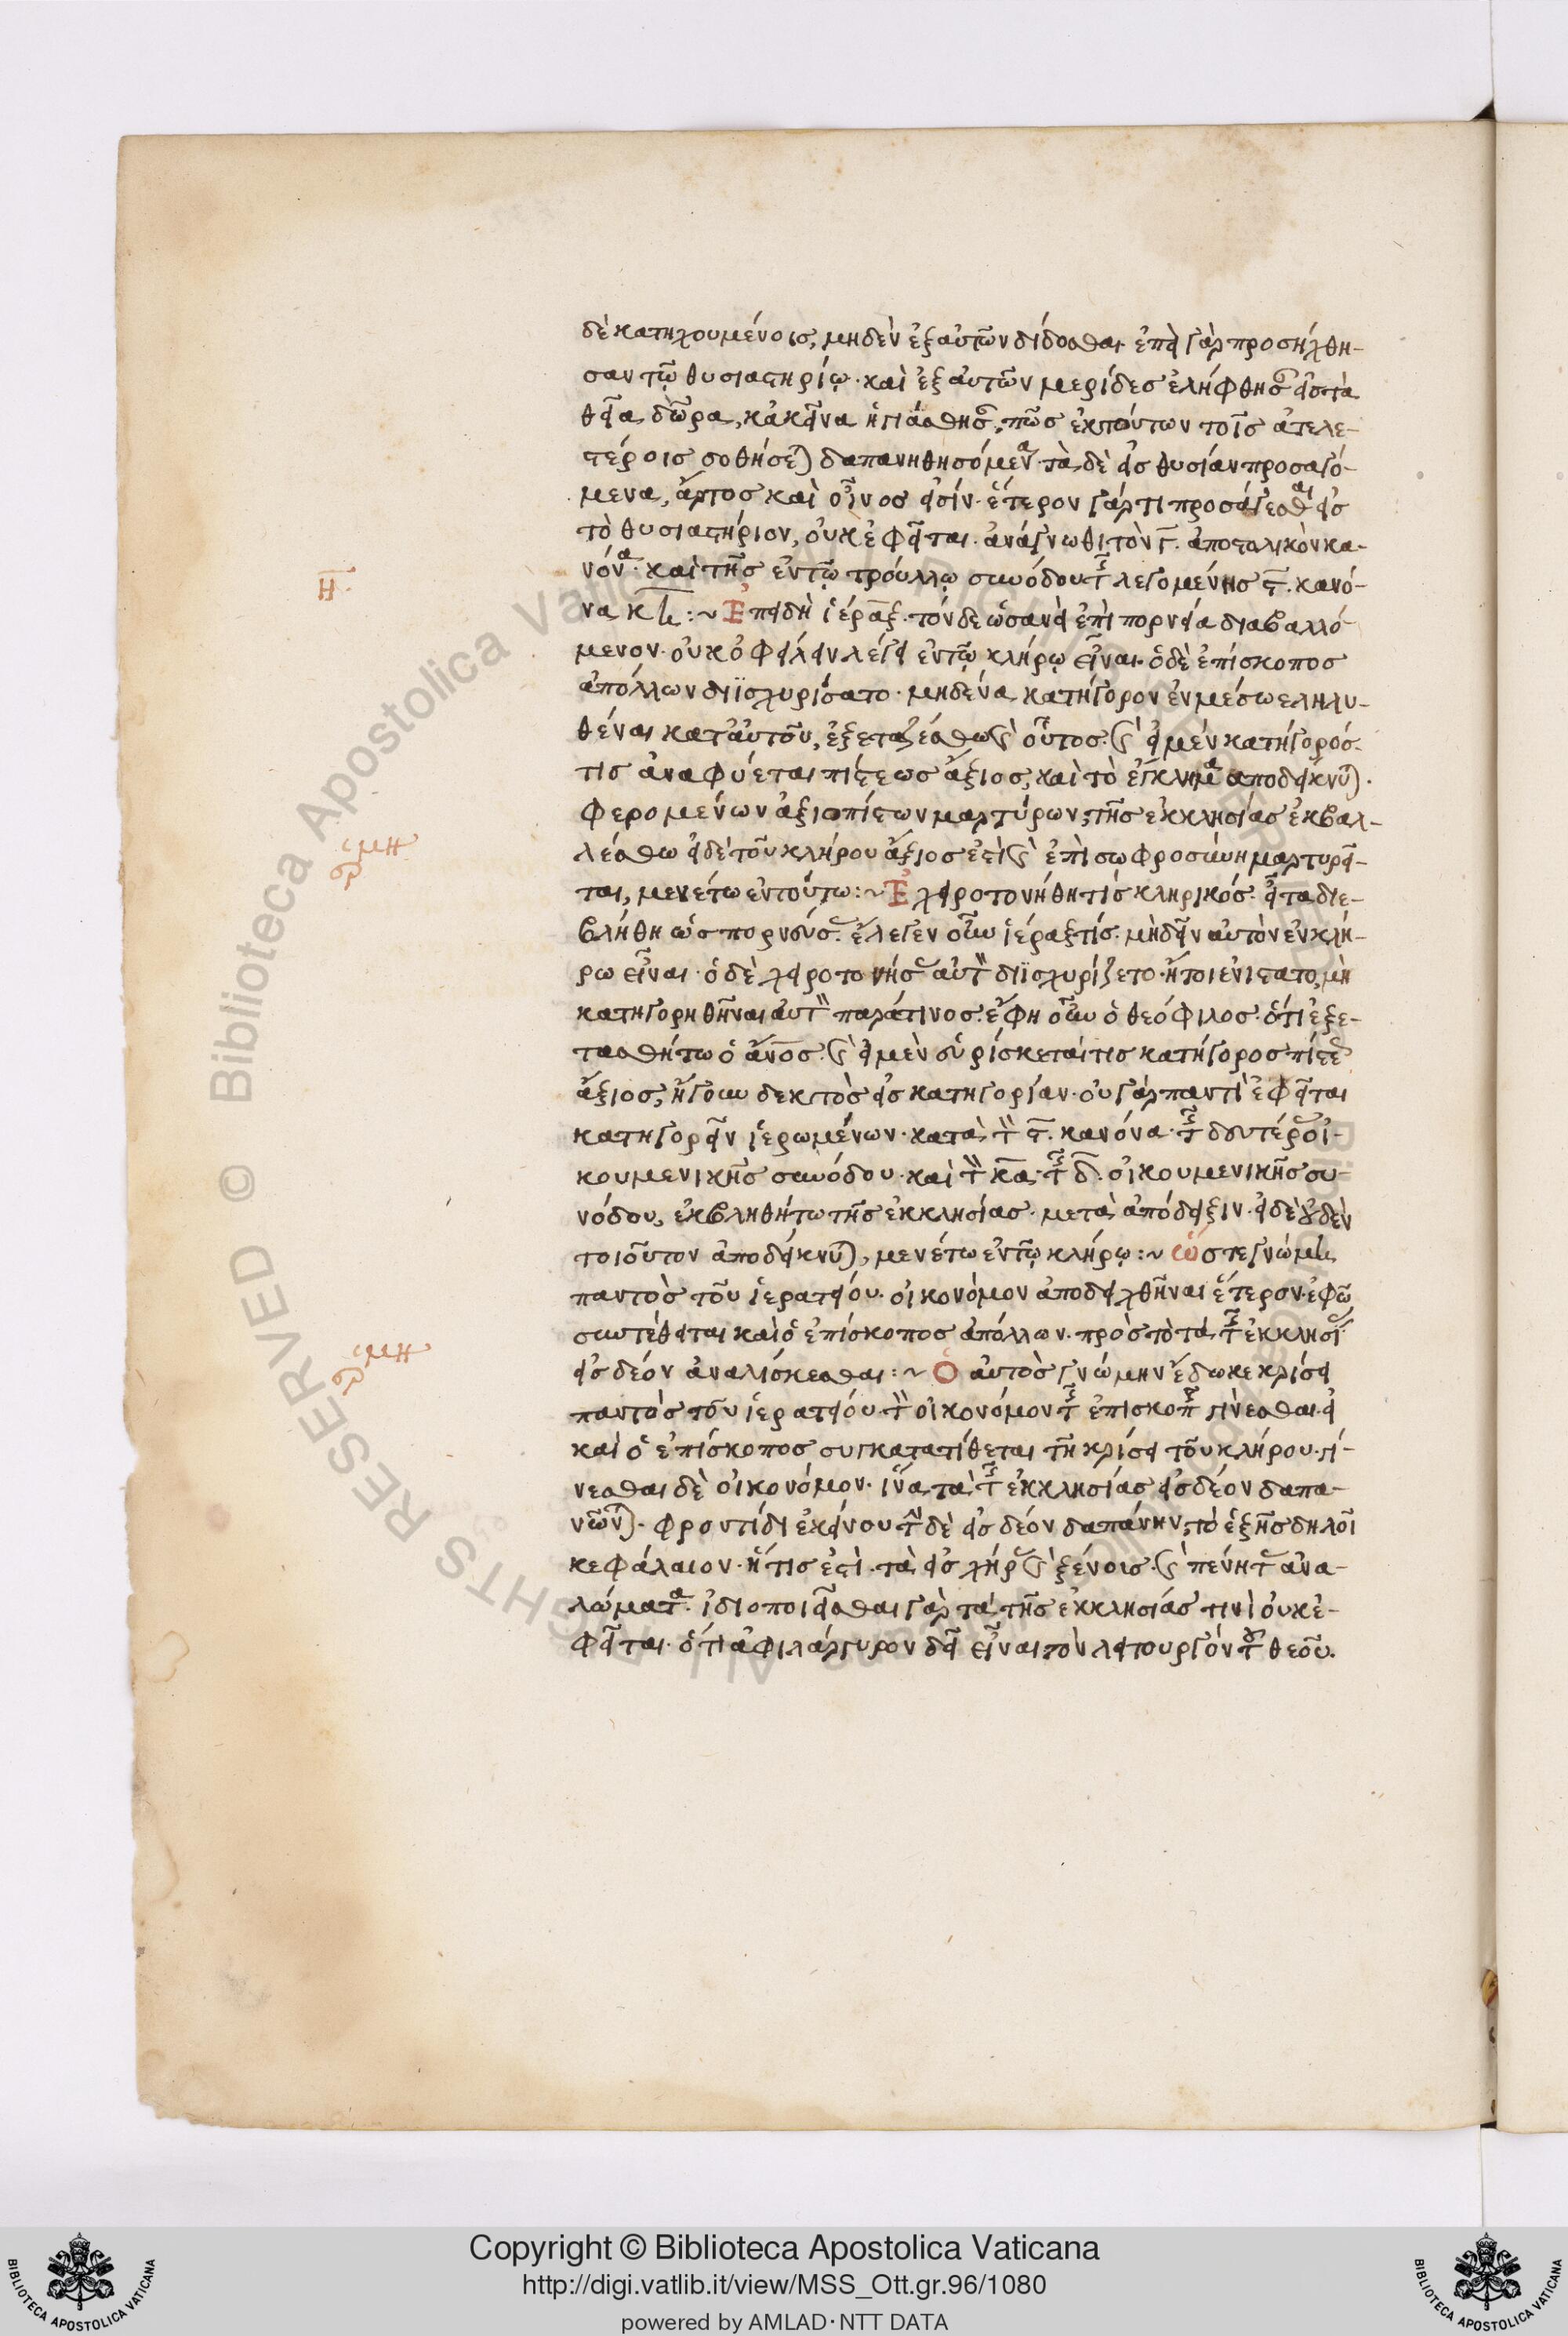 δὲ κατηχουμένοις, μηδὲν ἐξ αὐτῶν δίδοσθαι· ἐπεὶ γὰρ προσήχθη-
σαν τῷ θυσιαστηρίῳ· καὶ ἐξ αὐτῶν μερίδες ἐλήφθησαν εἰς τὰ
θεῖα δῶρα, κἀκεῖνα ἡγιάσθησαν, πῶς ἐκ τούτων τοῖς ἀτελε-
στέροις δοθήσεται δαπανηθησόμενα· τὰ δὲ εἰς θυσίαν προσαγό-
μενα, ἄρτος καὶ οἶνος εἰσίν· ἕτερον γάρ τι προσάγεσθαι εἰς
τὸ θυσιαστήριον, οὐκ ἐφεῖται· ἀνάγνωθι τὸν γ̄. ἀποστολικὸν κα-
νόνα· καὶ τῆς ἐν τῷ τρούλλῳ συνόδου τῆς λεγομένης ς̄. κανό-
να κη̄ :~ Ἐπειδὴ ἱέραξ· τόνδε ὡσανεὶ ἐπὶ πορνεία διαβαλλό-
μενον· οὐκ ὀφείλειν λέγει ἐν τῷ κλήρῳ εἶναι· ὁ δὲ ἐπίσκοπος
ἀπόλλων διϊσχυρίσατο· μηδένα κατήγορον ἐν μέσω εληλυ-
θέναι κατ' αὐτοῦ, ἐξεταζέσθω καὶ οὗτος· καὶ εἰ μέν κατήγορός
τις ἀναφύεται πίστεως ἄξιος, καὶ τὸ ἔγκλημα αποδείκνυται·
φερομένων ἀξιοπίστων μαρτύρων, τῆς ἐκκλησίας ἐκβαλ-
λέσθω εἰ δὲ τοῦ κλήρου ἄξιος ἐστὶ καὶ ἐπὶ σωφροσύνη μαρτυρεῖ-
ται, μενέτω ἐν τούτω :~ Ἐχειροτονήθη τίς κληρικός· εἶτα διε-
βλήθη ὡς πορνεύσας· ἔλεγεν οὖν ἱέραξ τίς· μὴ δεῖν αὐτὸν ἐν κλή-
ρω εἶναι· ὁ δὲ χειροτονήσας αὐτὸν διϊσχυρίζετο· ἤτοι ἐνίστατο, μὴ
κατηγορηθῆναι αὐτὸν παρά τινος· ἔφη οὖν ὁ θεόφιλος· ὅτι ἐξε-
τασθήτω ὁ ἄνος· καὶ εἰ μὲν εὑρίσκεταί τις κατήγορος πίστεως
ἄξιος, ἤγουν δεκτὸς εἰς κατηγορίαν· οὐ γὰρ παντὶ ἐφεῖται
κατηγορεῖν ἱερωμένων· κατὰ τὸν ς̄. κανόνα τῆς δευτέρας οἰ-
κουμενικῆς συνόδου· καὶ τὸν κ̄ᾱ· τῆς δ̄. οἰκουμενικῆς συ-
νόδου, ἐκβληθήτω τῆς ἐκκλησίας· μετὰ ἀπόδειξιν· εἰ δὲ οὐδὲν
τοιοῦτον ἀποδείκνυται, μενέτω ἐν τῷ κλήρῳ :~ ὥστε γνώμη
παντὸς τοῦ ἱερατείου· οἰκονόμον ἀποδειχθῆναι ἕτερον· ἐφ ᾧ
συντέθειται καὶ ὁ ἐπίσκοπος ἀπόλλων· πρὸς τὸ τὰ τῆς ἐκκλησίας
εἰς δέον ἀναλίσκεσθαι :~ Ὁ αὐτὸς γνώμην ἔδωκε κρίσει
παντὸς τοῦ ἱερατείου· τὸν οἰκονόμον τῆς ἐπισκοπῆς γίνεσθαι· εἰ
καὶ ὁ ἐπίσκοπος συγκατατίθεται τῆ κρίσει τοῦ κλήρου· γί-
νεσθαι δὲ οἰκονόμον· ἵνα τὰ τῆς ἐκκλησίας εἰς δέον δαπα-
νῶνται· φροντίδι ἐκείνου τὴν δὲ εἰς δέον δαπάνην, τὸ ἑξῆς δηλοῖ
κεφάλαιον· ἥτις ἐστὶ· τὰ εἰς χήρας καὶ ξένοις· καὶ πένητας ἀνα-
λώματα· ἰδιοποιεῖσθαι γὰρ τὰ τῆς ἐκκλησίας τινὶ οὐκ ἐ-
φεῖται· ὅτι ἀφιλάργυρον δεῖ εἶναι τὸν λειτουργόν τοῦ θεοῦ.
Η̄.
Copyright © Biblioteca Apostolica Vaticana
http://digi.vatlib.it/view/MSS_Ott.gr.96/1080
powered by AMLAD·NTT DATA